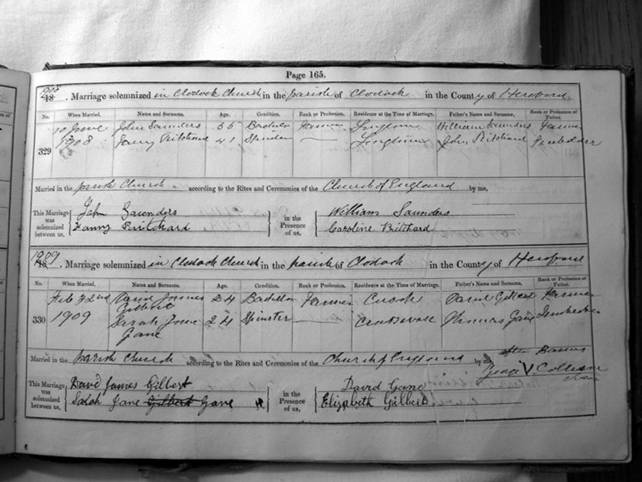 Page 165.
1908. Marriage solemnized in Clodock Church in the parish of Clodock in the County of Hereford
No. When Married. Name and Surname. Age. Condition. Rank or Profession. Residence at the Time of Marriage. Father's Name and Surname. Rank or Profession of Father.
329 10 June John Saunders 35 Bachelor Farmer Longtown William Saunders Farmer
1908 Fanny Pritchard 41 Spinster — Longtown John Pritchard
Married in the parish Church according to the Rites and Ceremonies of the Church of England by me,
This Marriage was solemnized between us, John Saunders in the Presence of us, William Saunders
Fanny Pritchard Caroline Pritchard
1909. Marriage solemnized in Clodock Church in the parish of Clodock in the County of Hereford
No. When Married. Name and Surname. Age. Condition. Rank or Profession. Residence at the Time of Marriage. Father's Name and Surname. Rank or Profession of Father.
330 Feb 22nd David James 24 Bachelor Farmer Gilbert Farmer
Gilbert
1909 Sarah Jane 24 Spinster — Thomas
Gane
Married in the Parish Church according to the Rites and Ceremonies of the Church of England by me, after Banns
This Marriage was solemnized between us, David James Gilbert in the Presence of us, David Gane
Sarah Jane Gilbert Gane Elizabeth Gilbert